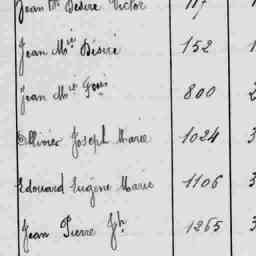 Jean Mie Desire Victor 117
Jean Mie Désiré 152 1
Jean Mie Louis 800 2
Ollivier Joseph Marie 1024 3
Edouard Eugène Marie 1106 3
Jean Pierre Jh 1265 3